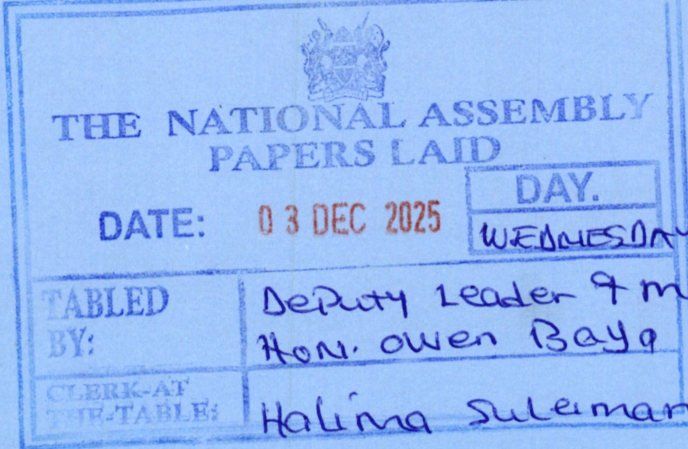 THE NATIONAL ASSEMBLY
PAPERS LAID
DATE: 03 DEC 2025
DAY.
WEDNESDAY
TABLED
BY:
Deputy Leader
Hon. Owen Baya
CLERK-AT
THE-TABLE:
Halima Suleiman